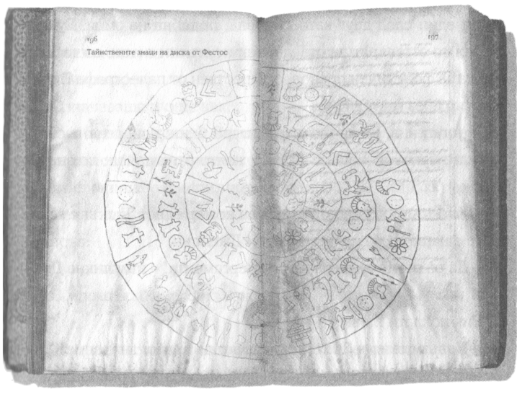 196
Тайнствените знаци на диска от Фестос
197